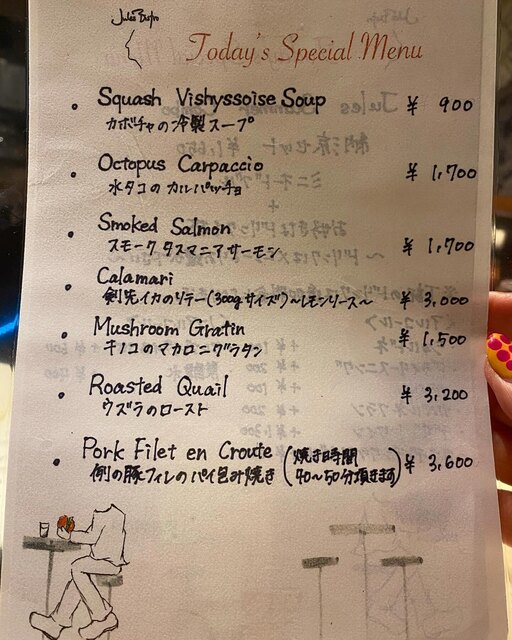 Jules Bistro
Today's Special Menu
Squash Vishyssoise Soup ¥ 900
カボチャの冷製スープ
Octopus Carpaccio ¥ 1,700
水タコのカルパッチョ
Smoked Salmon
スモークタスマニアサーモン ¥ 1,700
Calamari
剣先イカのソテー(300gサイズ)〜レモンソース〜 ¥ 3,000
Mushroom Gratin ¥ 1,500
キノコのマカロニグラタン
Roasted Quail ¥ 3,200
ウズラのロースト
Pork Filet en Croute (焼き時間 ¥ 3,600
例の豚フィレのパイ包み焼き 40〜50分頂きます)